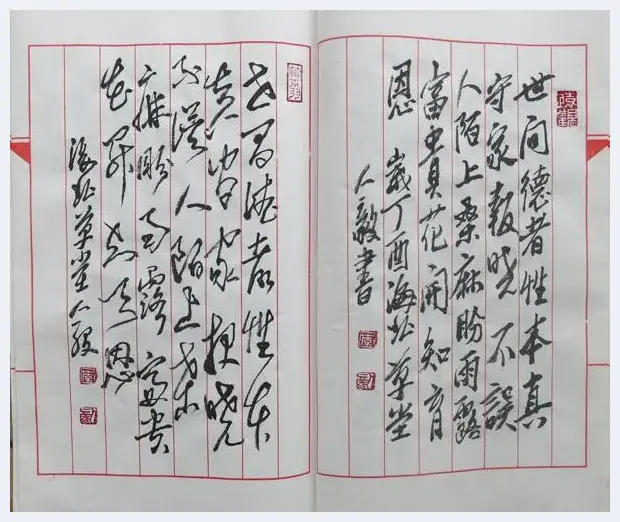 世间德者性本真
守家報晓不誤
人陌上桑麻盼雨露
富貴花開知育
恩 歲丁酉海北草堂
人毅書
世间德者性本
真守家报晓
不误人陌上桑
麻盼雨露富贵
花开知育恩
海北草堂人毅